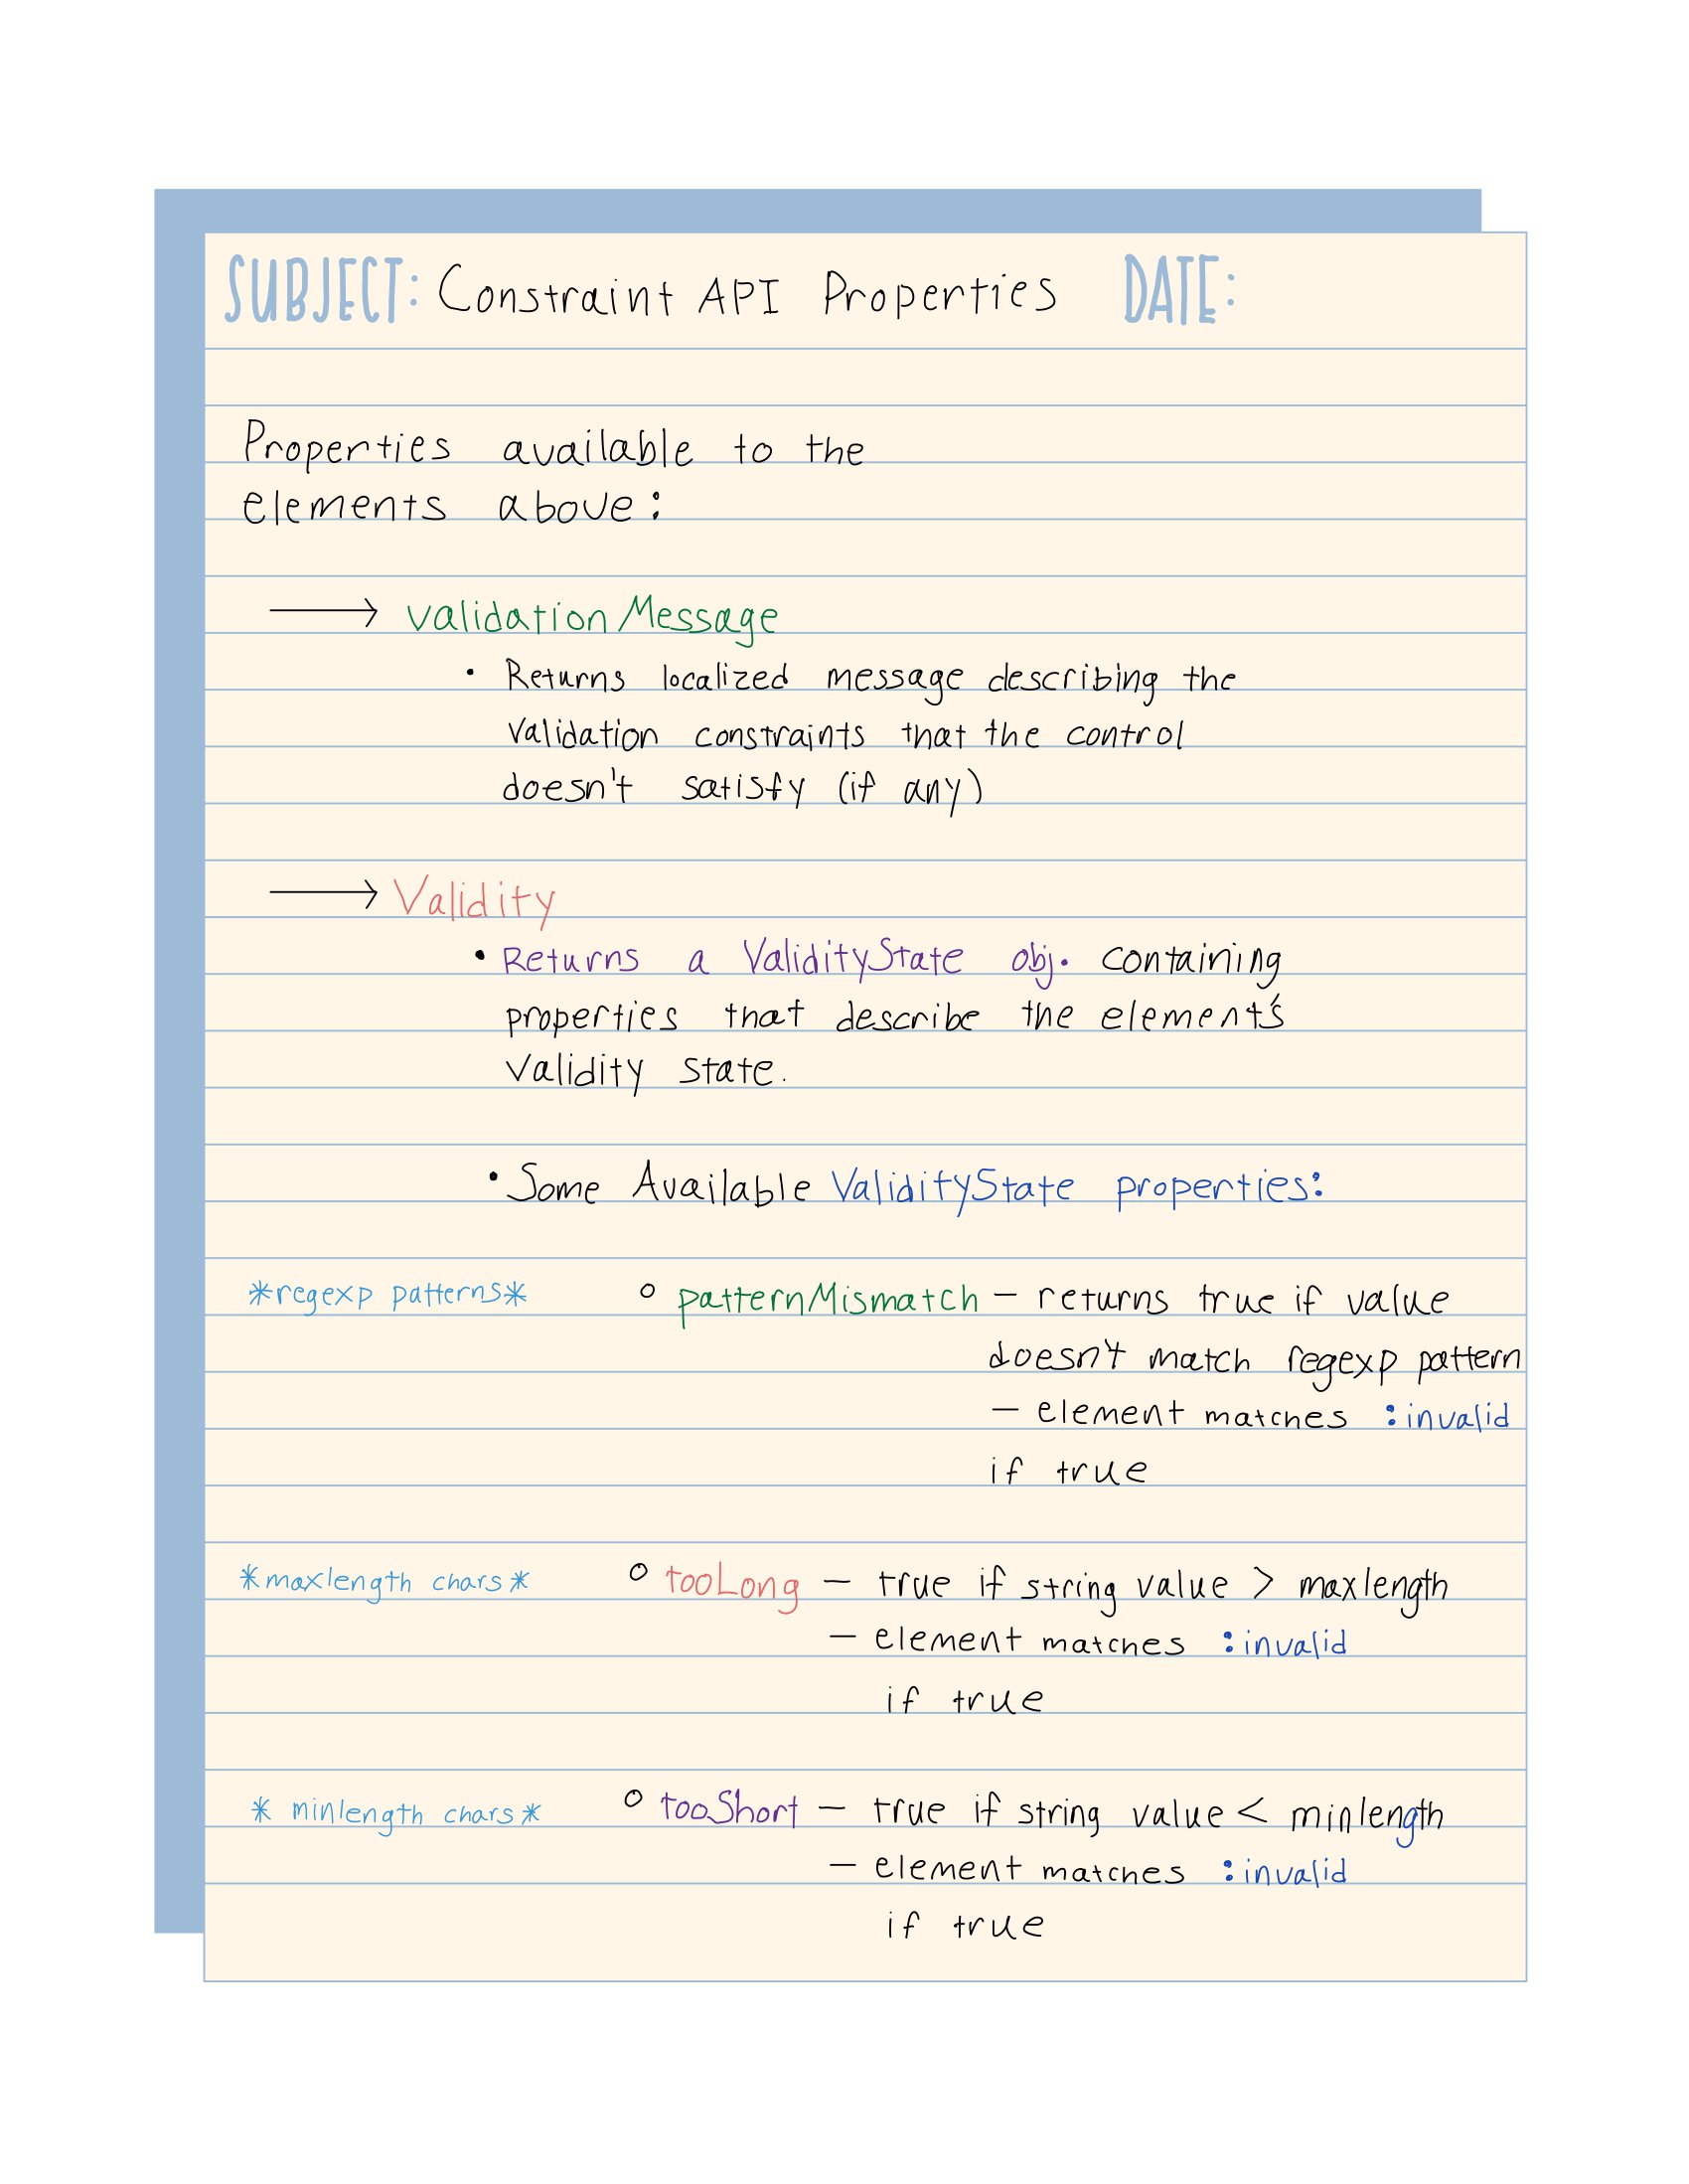 SUBJECT: Constraint API Properties DATE:
Properties available to the
elements above:
→ validationMessage
• Returns localized message describing the
validation constraints that the control
doesn't satisfy (if any)
→ Validity
• Returns a ValidityState obj. containing
properties that describe the element's
validity state.
• Some Available ValidityState properties:
*regexp patterns* ○ patternMismatch – returns true if value
doesn't match regexp pattern
– element matches :invalid
if true
*maxlength chars* ○ tooLong – true if string value > maxlength
– element matches :invalid
if true
* minlength chars* ○ tooShort – true if string value < minlength
– element matches :invalid
if true